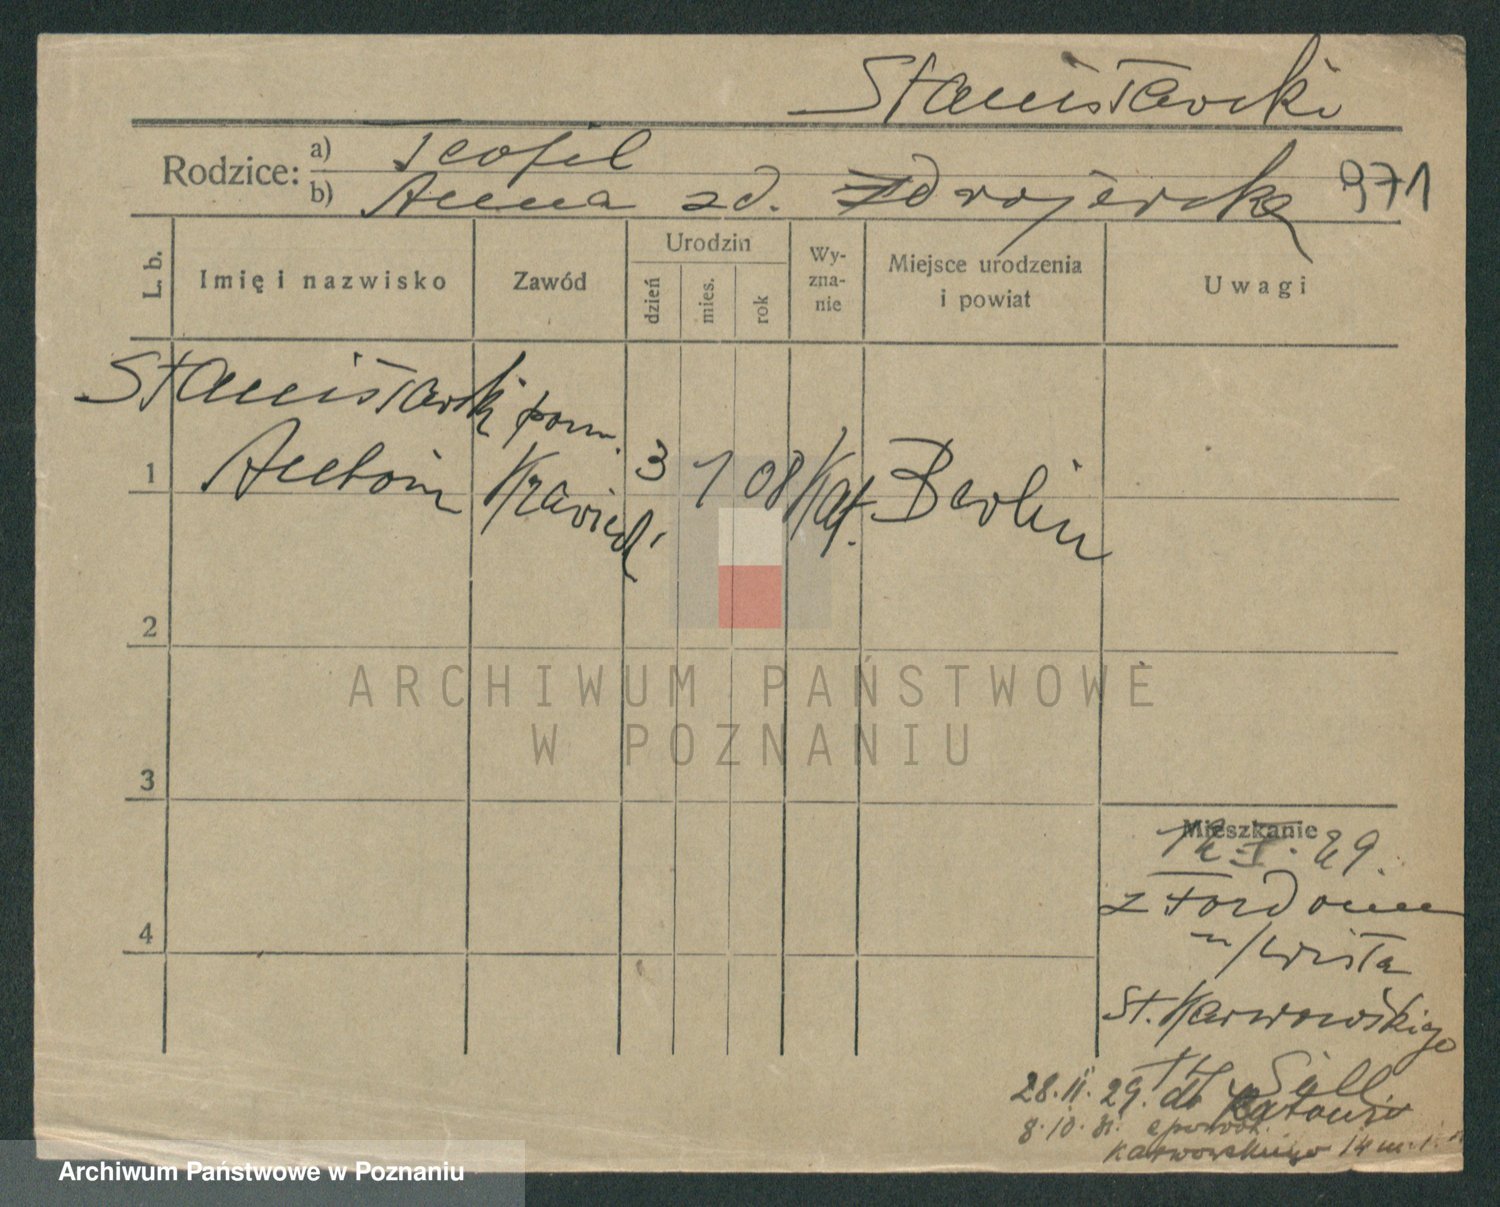 Stanisławski
Rodzice: a) Teofil
b) Anna zd. Zdrojewska 971
L. b. Imię i nazwisko Zawód Urodzin dzień mies. rok Wy-zna-nie Miejsce urodzenia i powiat Uwagi
Stanisławski pom.
1 Antoni Krawiecki 3 1 08 Kat. Berlin
2
3
4
Mieszkanie
12.I.29.
z Fordonu
n/Wisłą
St. Karwowskiego
14 Sell
28.II.29. do Katowic
8.10.31. z powrot.
Karwowskiego 14 m. 1.
ARCHIWUM PAŃSTWOWE
W POZNANIU
Archiwum Państwowe w Poznaniu